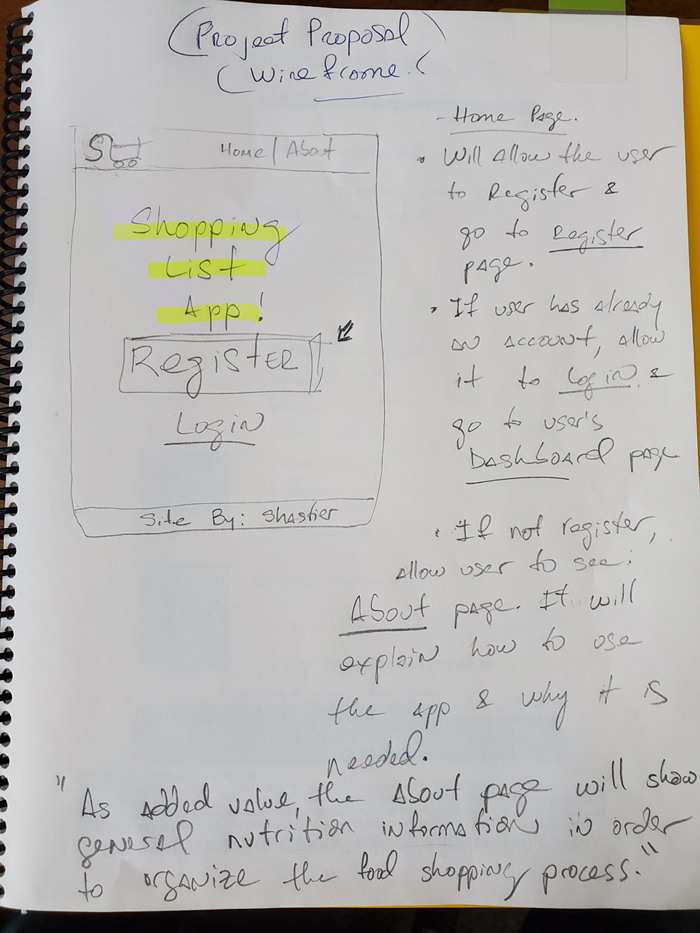 (Project Proposal)
(Wireframe.(
S
Home | About
Shopping
List
App!
Register
Login
Site By: Shastier
- Home Page.
• Will Allow the user
to Register &
go to Register
page.
• If user has already
an account, allow
it to Login &
go to user's
Dashboard page
• If not register,
allow user to see:
About page. It will
explain how to use
the app & why it is
needed.
"As added value, the About page will show
general nutrition information in order
to organize the food shopping process."